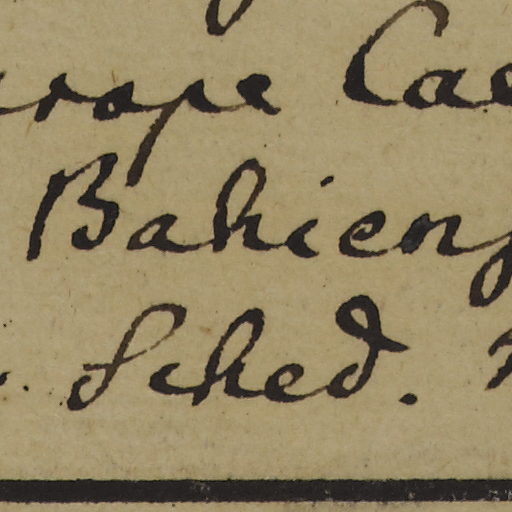 urope Cae
Bahiens
. Sched.